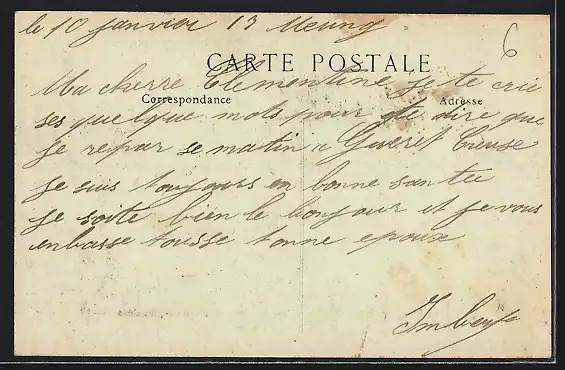 le 10 janvier 13 Meung
6
CARTE POSTALE
Ma cherre Clementine je te crie
Correspondance
Adresse
ses quelque mots pour te dire que
je repar se matin a Gueret Creuse
je suis toujours en bonne santee
je soite bien le bonjour et je vous
enbasse tousse tonne epoux